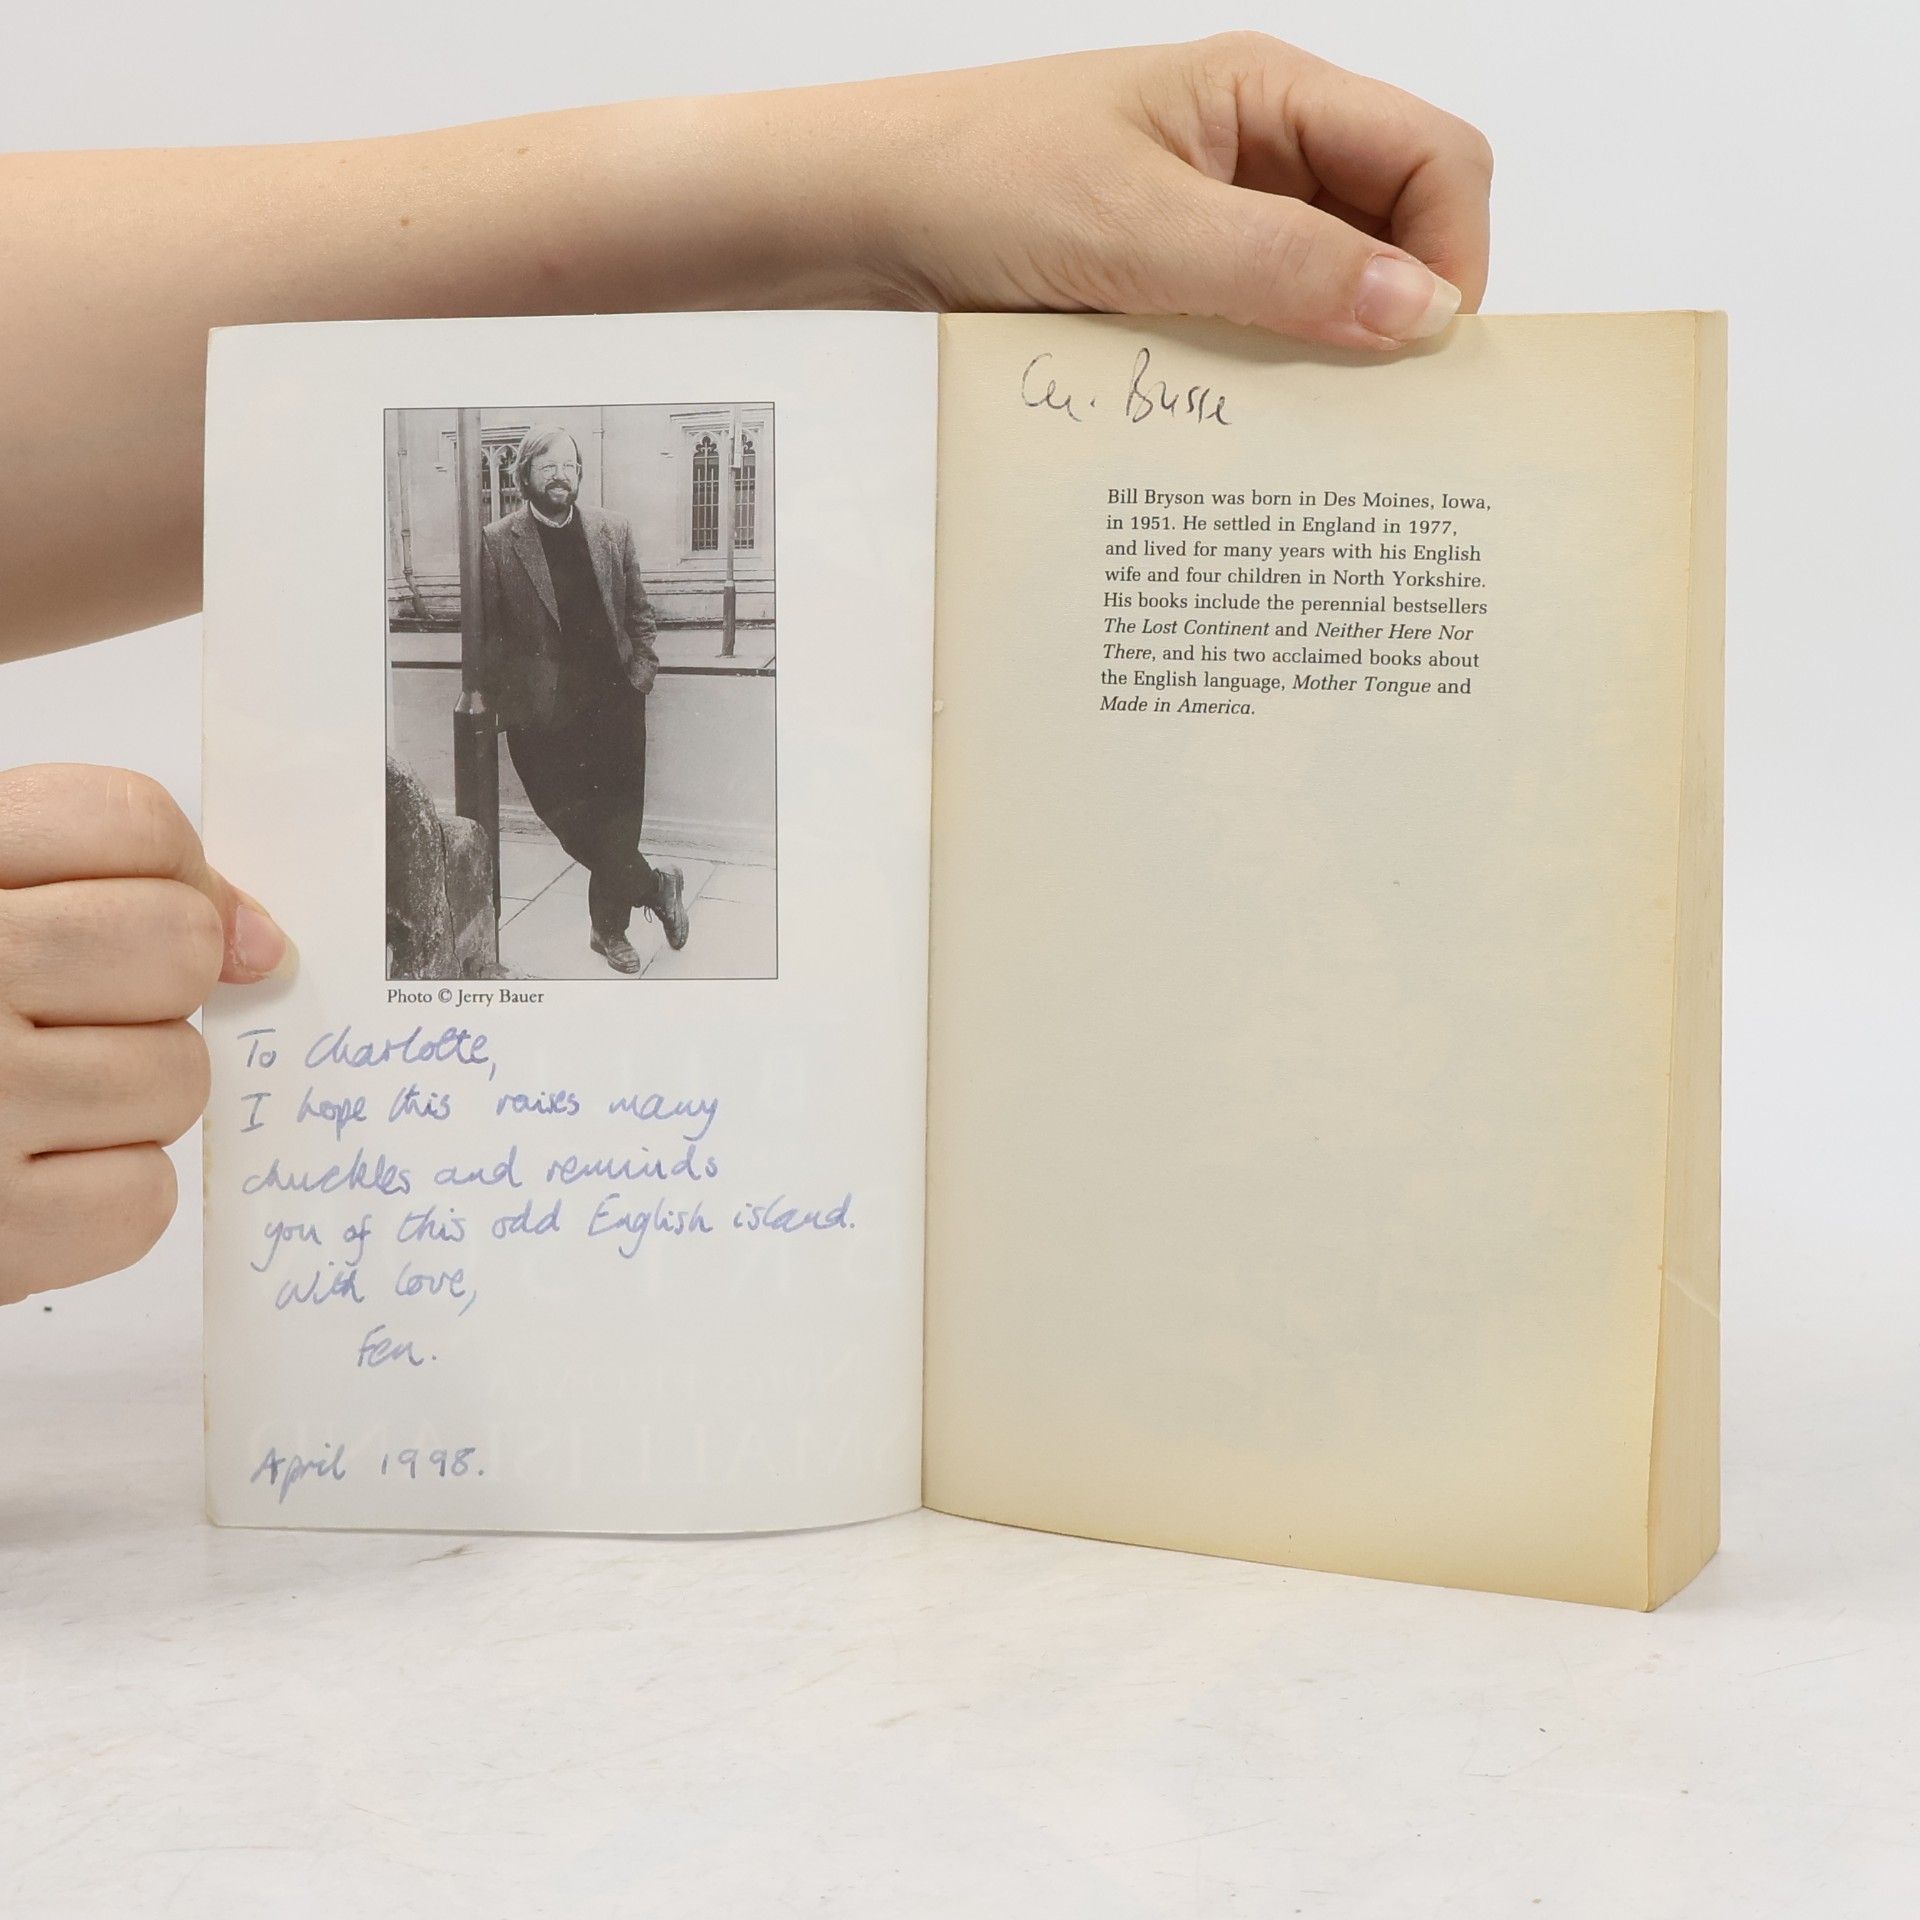 Photo © Jerry Bauer
To Charlotte,
I hope this raises many
chuckles and reminds
you of this odd English island.
With love,
Fen.
April 1998.
Busse
Bill Bryson was born in Des Moines, Iowa,
in 1951. He settled in England in 1977,
and lived for many years with his English
wife and four children in North Yorkshire.
His books include the perennial bestsellers
The Lost Continent and Neither Here Nor
There, and his two acclaimed books about
the English language, Mother Tongue and
Made in America.